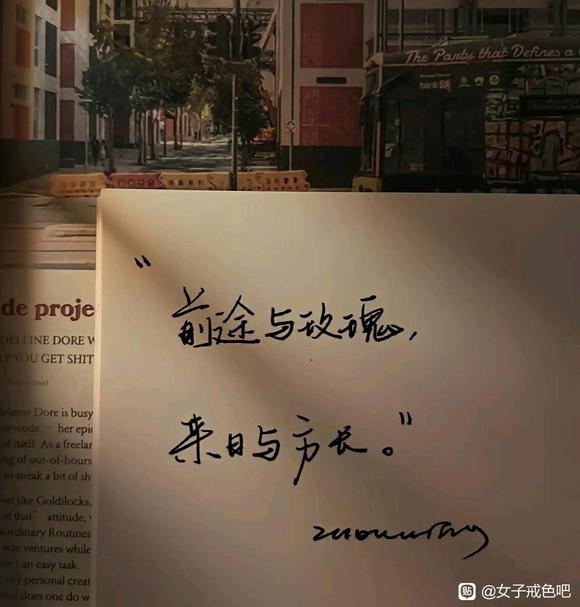 The Party that Defines a
bank SA
de proje
DELEINE DORE W
LP YOU GET SHIT
deleine Dore is busy
our-code – her epic
of itself. As a freelan
ng of out-of-hours
to sneak a bit of sh
feel like Goldilocks,
of that' attitude,
aordinary Routines
side ventures while
en't an easy task.
my personal creat
what does one do w
“前途与玫瑰,
来日与方长。”
贴 @女子戒色吧